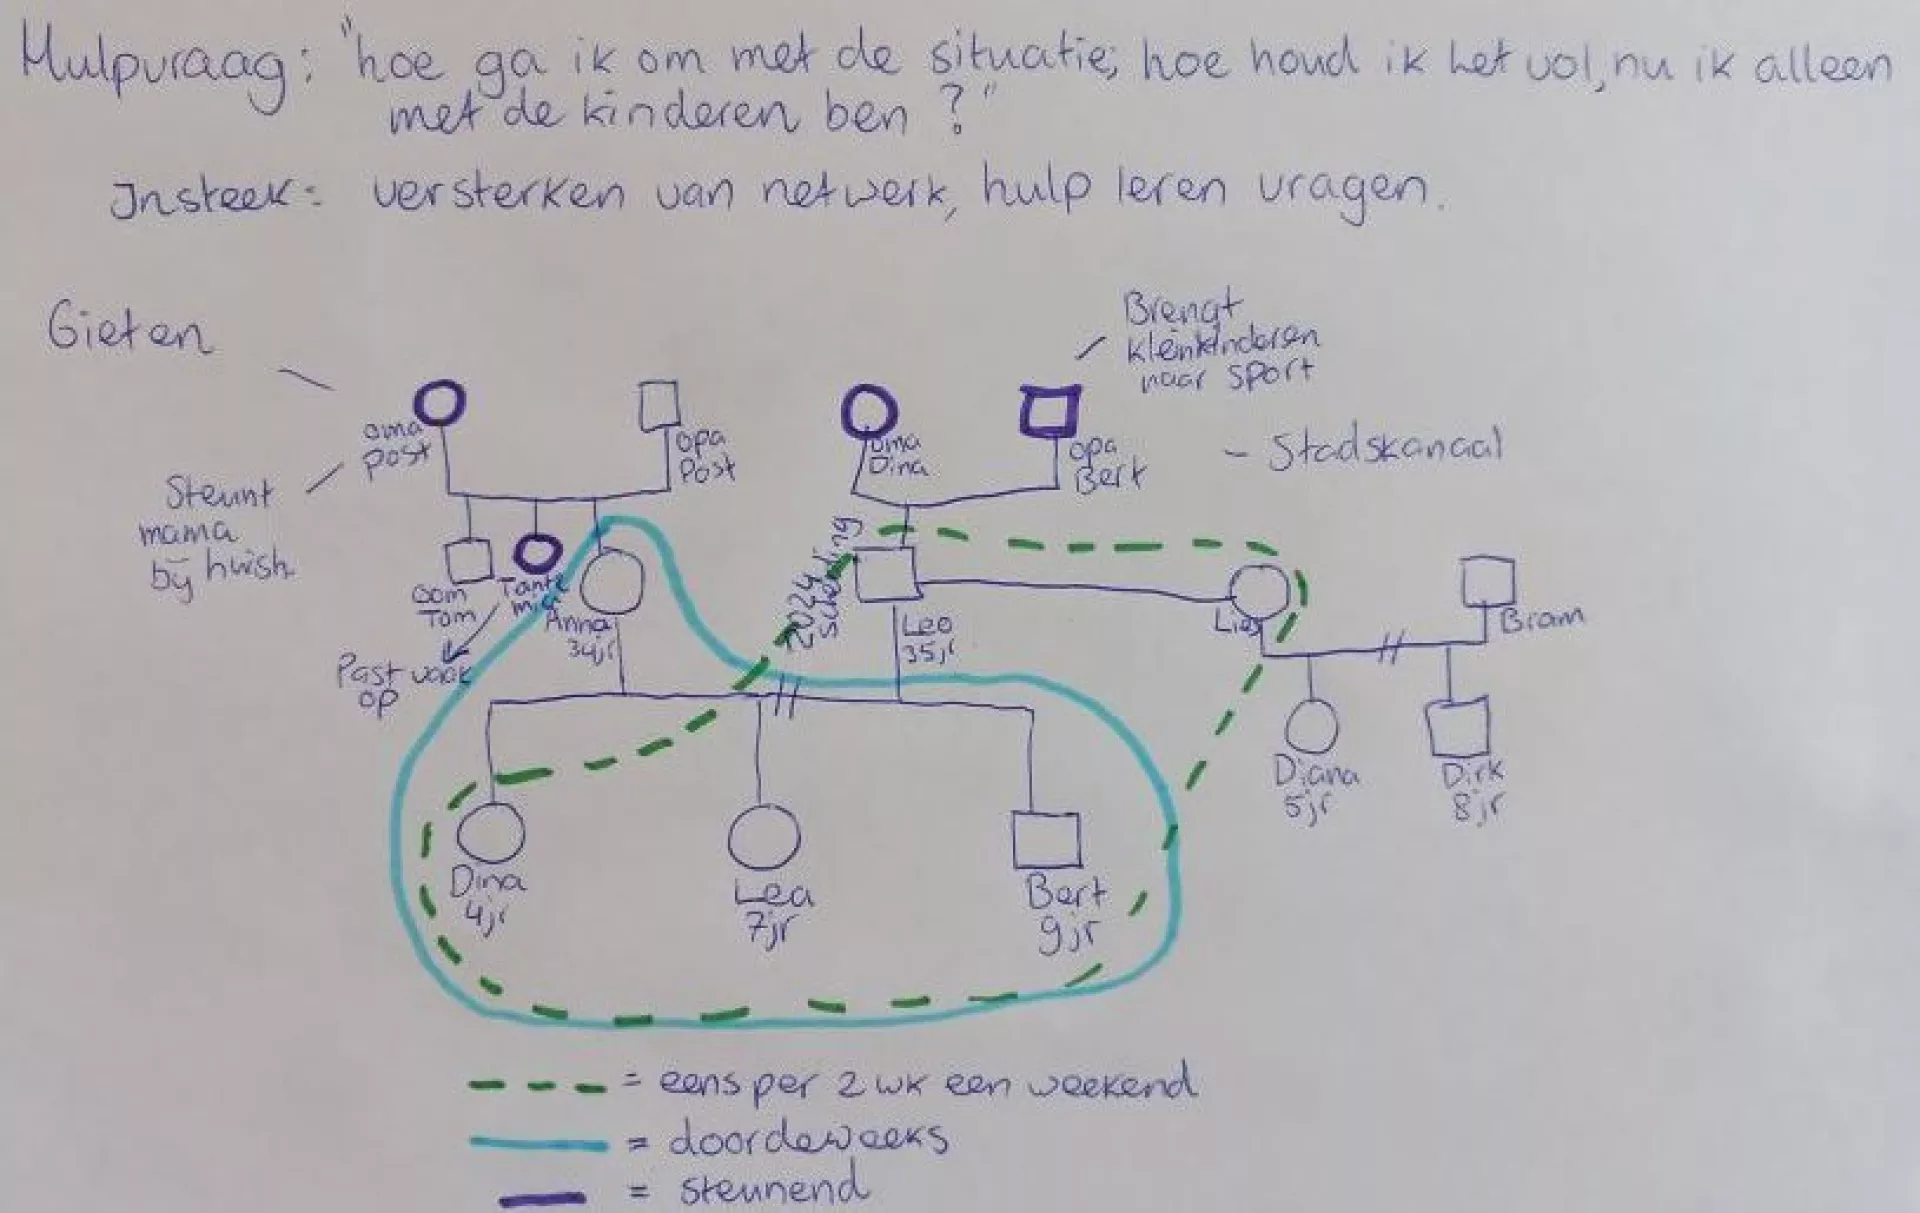 Hulpvraag: "hoe ga ik om met de situatie; hoe houd ik het vol, nu ik alleen
met de kinderen ben?"
Insteek: versterken van netwerk, hulp leren vragen.
Gieten
Brengt
kleinkinderen
naar sport
oma
post
opa
Post
oma
Dina
opa
Bert
- Stadskanaal
Steunt
mama
bij huish.
oom
Tom
Tante
mia
Anna
34jr
2024
scheiding
Leo
35jr
Lies
Bram
Past vaak
op
Diana
5jr
Dirk
8jr
Dina
4jr
Lea
7jr
Bert
9jr
= eens per 2 wk een weekend
= doordeweeks
= steunend